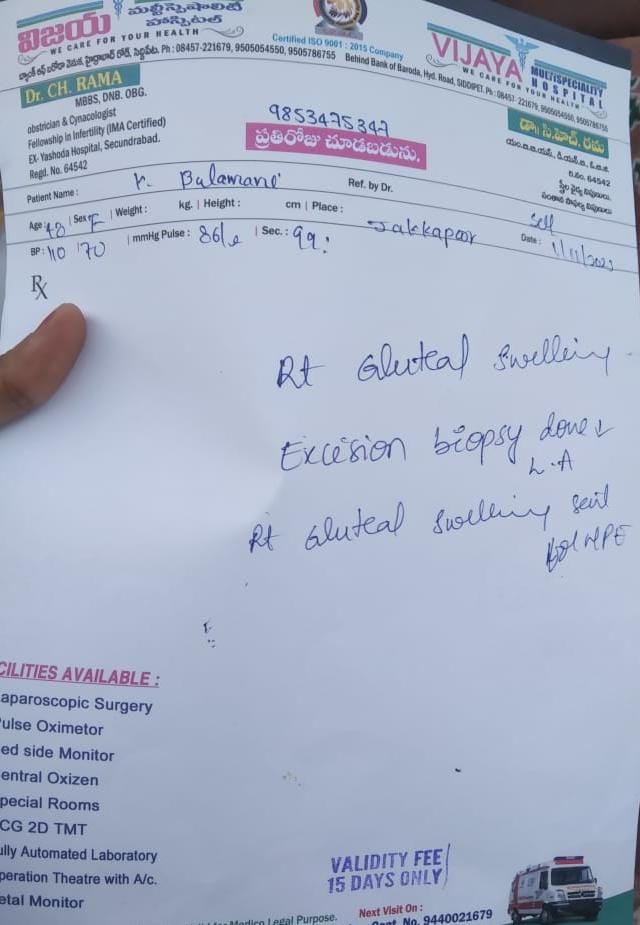 విజయ మల్టీస్పెషాలిటీ హాస్పిటల్
WE CARE FOR YOUR HEALTH
బ్యాంక్ ఆఫ్ బరోడా వెనుక, హైద్రాబాద్ రోడ్, సిద్దిపేట. Ph : 08457-221679, 9505054550, 9505786755
Certified ISO 9001 : 2015 Company
VIJAYA MULTISPECIALITY HOSPITAL
WE CARE FOR YOUR HEALTH
Behind Bank of Baroda, Hyd. Road, SIDDIPET. Ph : 08457- 221679, 9505054550, 9505786755
Dr. CH. RAMA
MBBS, DNB. OBG.
obstrician & Gynacologist
Fellowship in Infertility (IMA Certified)
EX- Yashoda Hospital, Secundrabad.
Regd. No. 64542
9853475347
ప్రతిరోజు చూడబడును.
డా॥ సి.హెచ్. రమ
యం.బి.బి.యస్, డి.యన్.బి, ఓ.బి.జి
రి.నం. 64542
స్త్రీల వైద్య నిపుణులు,
సంతాన సాఫల్య నిపుణులు
Patient Name : K. Balamani Ref. by Dr. Self
Age : 48 | Sex F | Weight : kg. | Height : cm | Place : Jakkapoor Date : 1/11/2023
BP : 110 70 | mmHg Pulse : 86/ | Sec. : 99.
Rx
Rt Gluteal swelling
Excesion biopsy done
L.A
Rt Gluteal swelling sent
for HPE
CILITIES AVAILABLE :
aparoscopic Surgery
ulse Oximetor
ed side Monitor
entral Oxizen
pecial Rooms
CG 2D TMT
ully Automated Laboratory
peration Theatre with A/c.
etal Monitor
VALIDITY FEE
15 DAYS ONLY
Medico Legal Purpose.
Next Visit On :
Cont. No. 9440021679